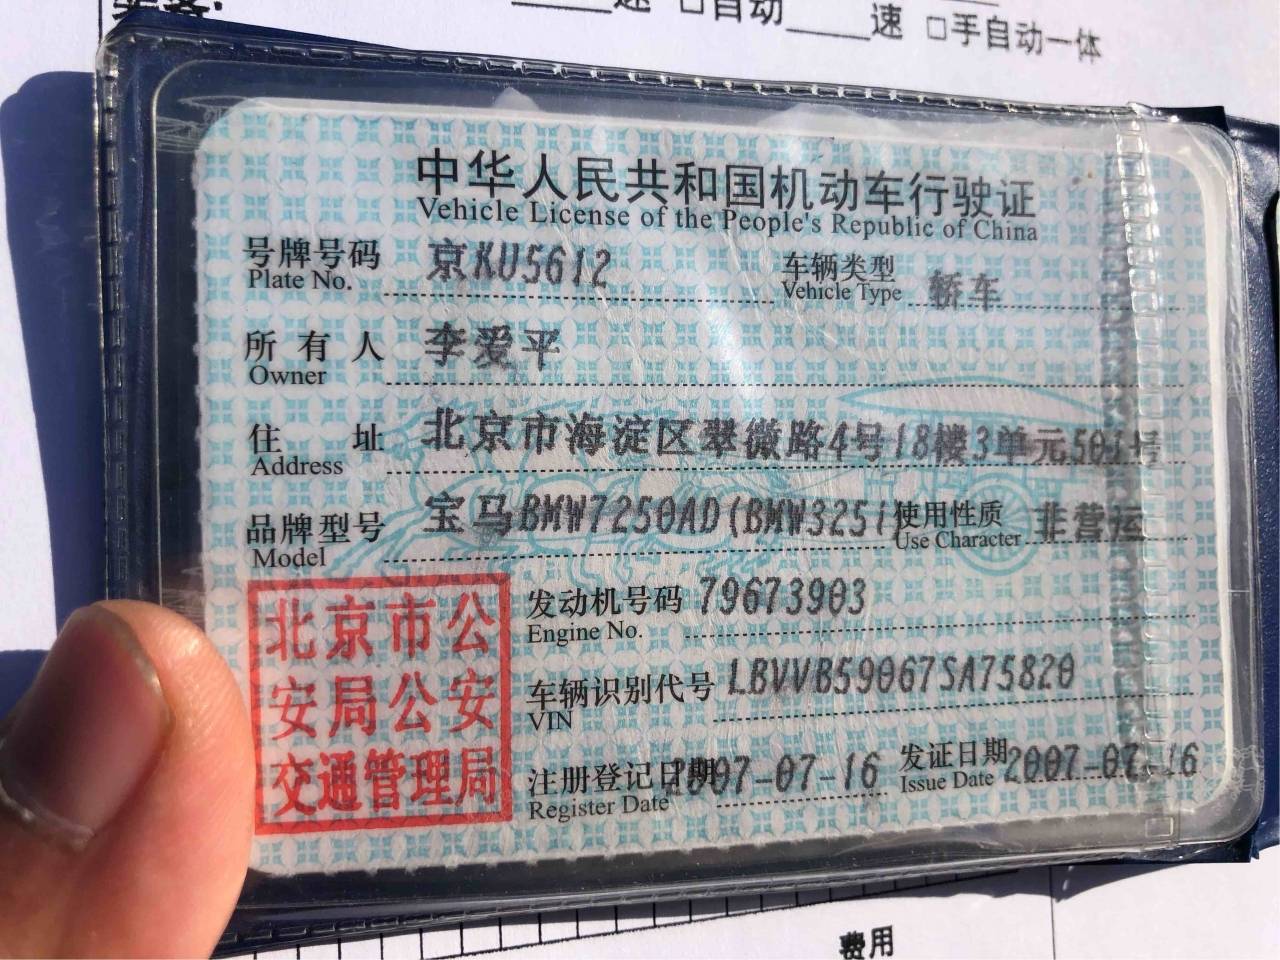 速 □自动____速 □手自动一体
中华人民共和国机动车行驶证
Vehicle License of the People's Republic of China
号牌号码 京KU5612 车辆类型 轿车
Plate No. Vehicle Type
所有人 李爱平
Owner
住址 北京市海淀区翠微路4号18楼3单元501号
Address
品牌型号 宝马BMW7250AD(BMW325i 使用性质 非营运
Model Use Character
北京市公
安局公安
交通管理局
发动机号码 79673903
Engine No.
车辆识别代号 LBVVB59067SA75820
VIN
注册登记日期 2007-07-16 发证日期 2007-07-16
Register Date Issue Date
费用